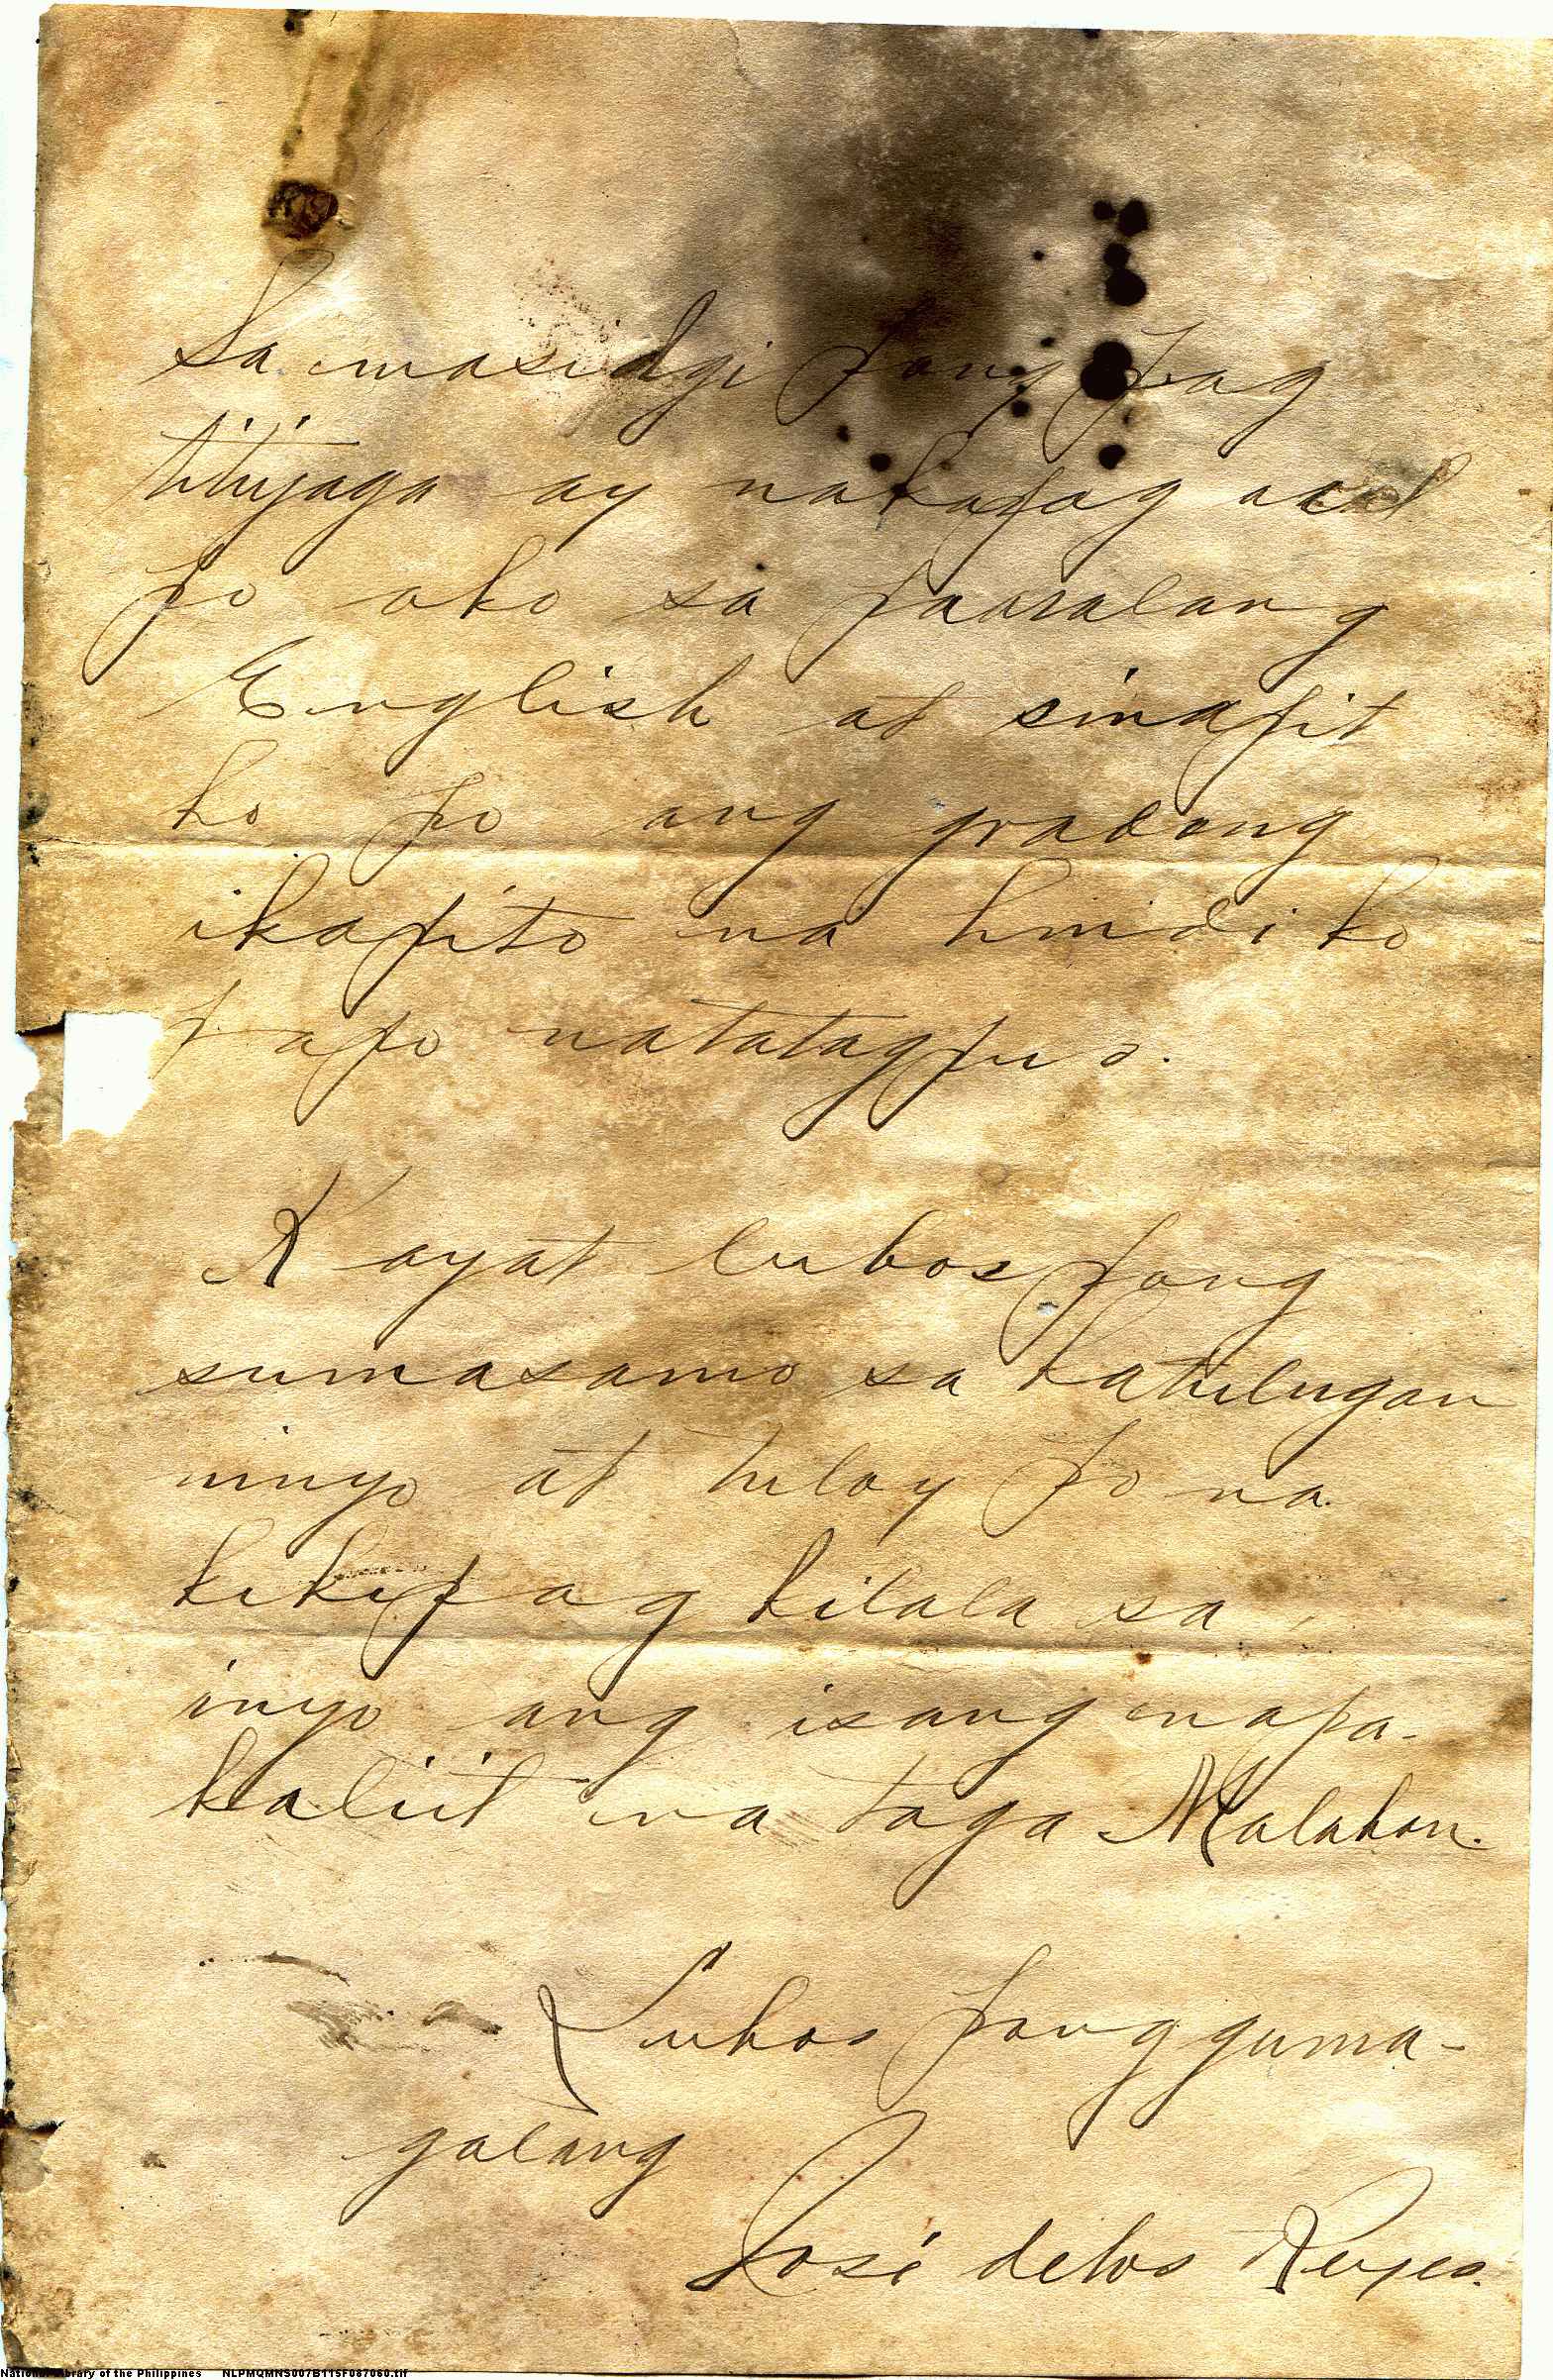 Sa masidgi pong pag
titiyaga ay nakapag aral
po ako sa paaralang
English at sinapit
ko po ang gradong
ikapito na hindi ko
papo natatagpus.
Kayat lubos pong
sumasamo sa katulugan
ninyo at tuloy po na
kikipag kilala sa
inyo ang isang napa-
kaliit na taga Malabon.
Lubos pong guma-
galang
José delos Reyes.
National Library of the Philippines NLPMQMNS007B115F087060.tif